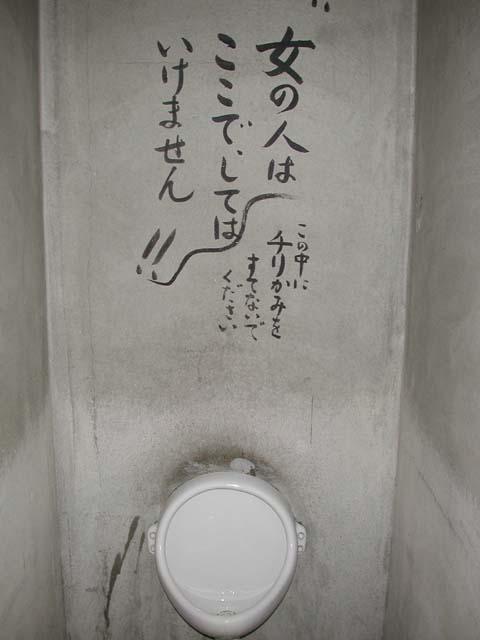 女の人は
ここで、しては
いけません
!!
この中に
チリかみを
すてないで
ください